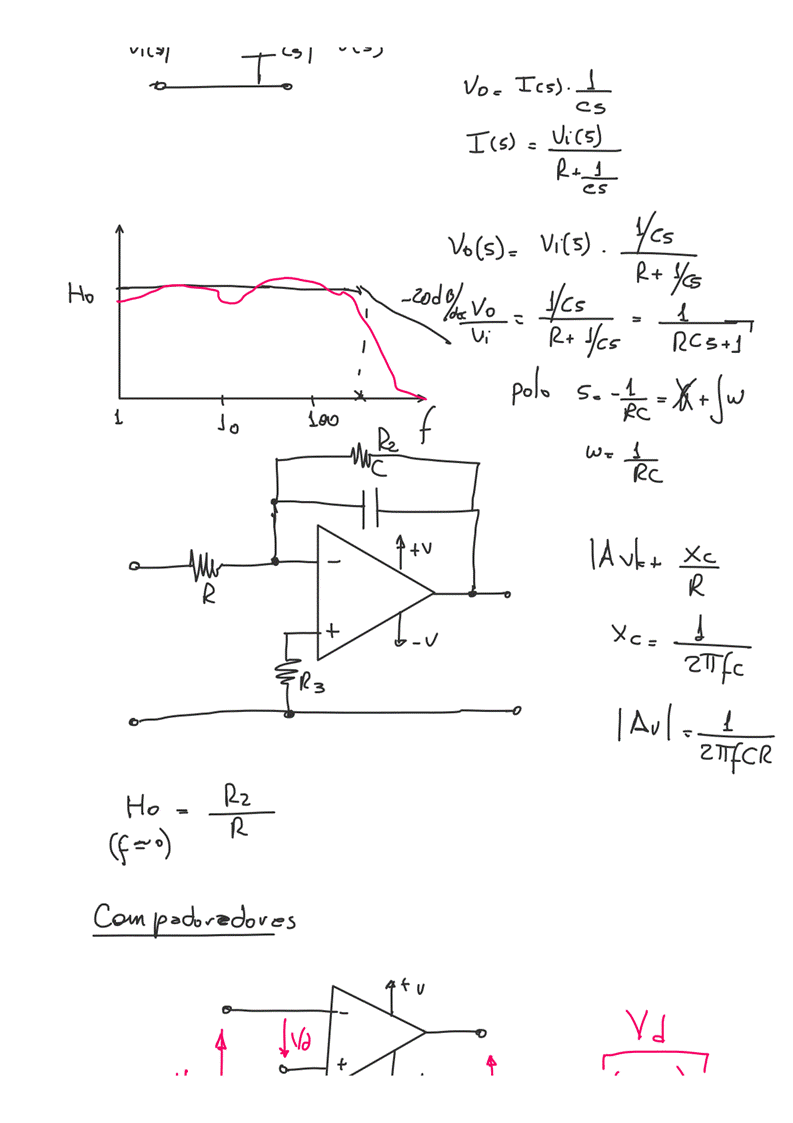 Vo = I(s) · 1/cs
I(s) = Vi(s)/(R + 1/cs)
Vo(s) = Vi(s) · (1/Cs)/(R + 1/Cs)
Ho
-20dB/dec
Vo/Vi = (1/Cs)/(R + 1/Cs) = 1/(RCs+1)
1
10
100
f
polo s = -1/RC = X + jw
w = 1/RC
R2
C
R
-
+
+V
-V
R3
|Av| = Xc/R
Xc = 1/(2πfC)
|Av| = 1/(2πfCR)
Ho = R2/R
(f=0)
Compadoradores
+V
-
Vd
+
Vd